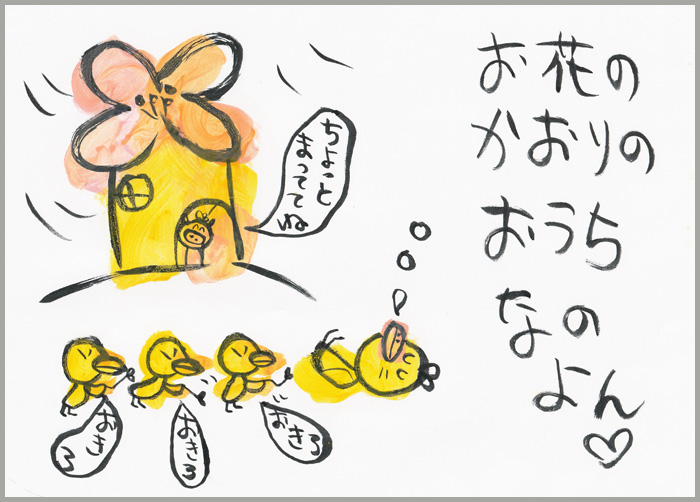 お花の
かおりの
おうち
なの
よん♡
ちょっと
まっててね
おきろ
おきろ
おきろ